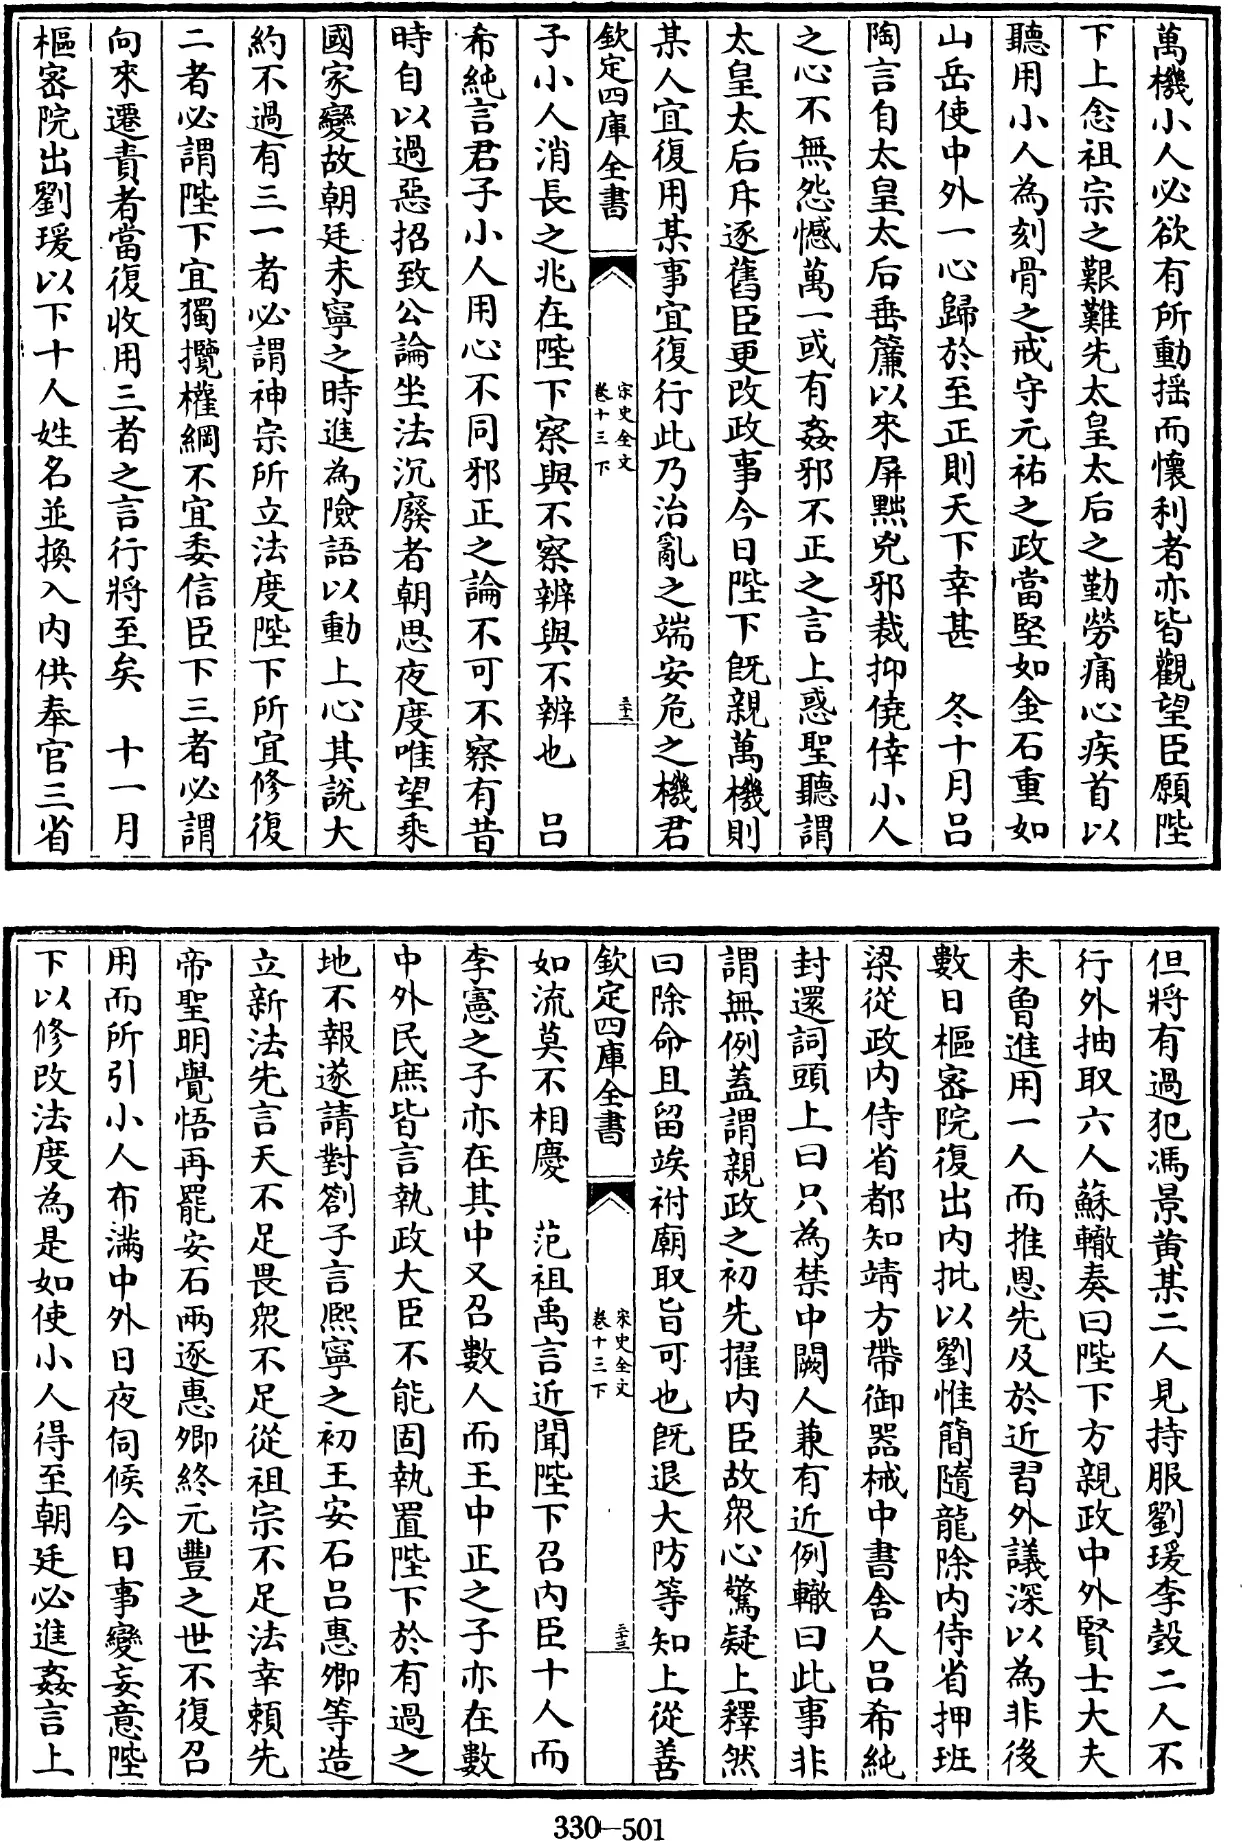 萬機小人必欲有所動揺而懐利者亦皆觀望臣願陛
下上念祖宗之艱難先太皇太后之勤勞痛心疾首以
聽用小人為刻骨之戒守元祐之政當堅如金石重如
山岳使中外一心歸於至正則天下幸甚　冬十月吕
陶言自太皇太后垂簾以來屏黜兇邪裁抑僥倖小人
之心不無怨憾萬一或有姦邪不正之言上惑聖聽謂
太皇太后斥逐舊臣更改政事今日陛下既親萬機則
某人宜復用某事宜復行此乃治亂之端安危之機君
欽定四庫全書
宋史全文
卷十三下
三十二
子小人消長之兆在陛下察與不察辨與不辨也　吕
希純言君子小人用心不同邪正之論不可不察有昔
時自以過惡招致公論坐法沉廢者朝思夜度唯望乘
國家變故朝廷未寧之時進為險語以動上心其說大
約不過有三一者必謂神宗所立法度陛下所宜修復
二者必謂陛下宜獨攬權綱不宜委信臣下三者必謂
向來遷責者當復收用三者之言行將至矣　十一月
樞密院出劉瑗以下十人姓名並換入内供奉官三省
但將有過犯馮景黄某二人見持服劉瑗李瑴二人不
行外抽取六人蘇轍奏曰陛下方親政中外賢士大夫
未魯進用一人而推恩先及於近習外議深以為非後
數日樞密院復出内批以劉惟簡隨龍除内侍省押班
梁從政内侍省都知靖方帶御器械中書舍人吕希純
封還詞頭上曰只為禁中闕人兼有近例轍曰此事非
謂無例蓋謂親政之初先擢内臣故衆心驚疑上釋然
曰除命且留竢祔廟取旨可也既退大防等知上從善
欽定四庫全書
宋史全文
卷十三下
三十三
如流莫不相慶　范祖禹言近聞陛下召内臣十人而
李憲之子亦在其中又召數人而王中正之子亦在數
中外民庶皆言執政大臣不能固執置陛下於有過之
地不報遂請對劄子言熙寧之初王安石吕惠卿等造
立新法先言天不足畏衆不足從祖宗不足法幸頼先
帝聖明覺悟再罷安石兩逐惠卿終元豐之世不復召
用而所引小人布滿中外日夜伺候今日事變妄意陛
下以修改法度為是如使小人得至朝廷必進姦言上
330-501